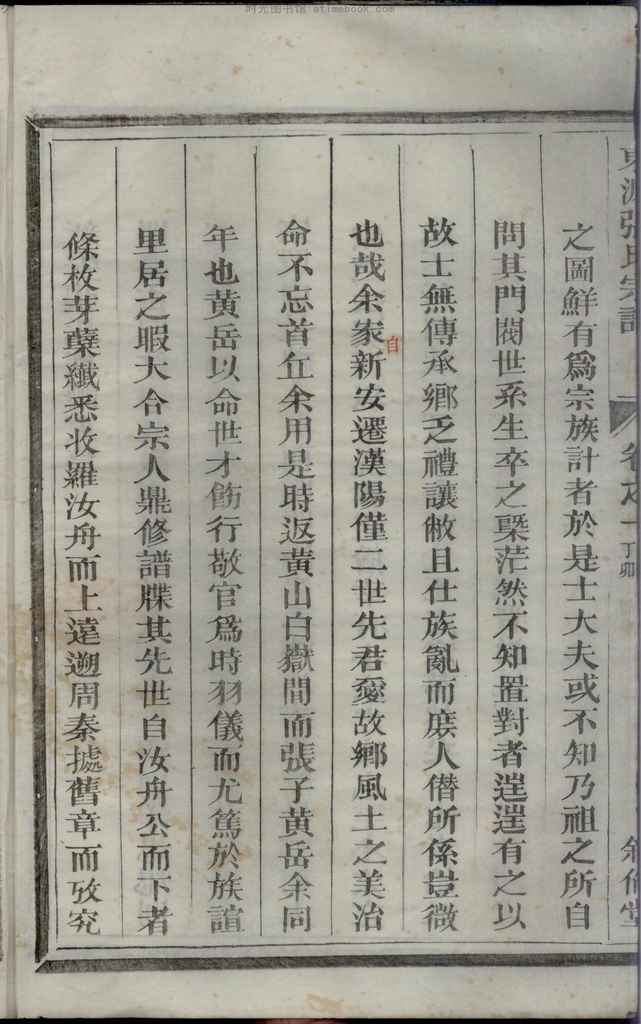 時光图书馆 atimebook.com
東源張氏宗譜 卷之一 丁卯 敘倫堂
之圖鮮有爲宗族計者於是士大夫或不知乃祖之所自
問其門閥世系生卒之槩茫然不知置對者逞逞有之以
故士無傳承鄉乏禮讓敝且仕族亂而庻人僣所係豈微
也哉余家新安遷漢陽僅二世先君愛故鄉風土之美治
自
命不忘首丘余用是時返黃山白嶽間而張子黃岳余同
年也黃岳以命世才飭行敬官爲時羽儀而尤篤於族誼
里居之暇大合宗人鼎修譜牒其先世自汝舟公而下者
條枚芽蘖纖悉收羅汝舟而上遠遡周秦據舊章而攷究